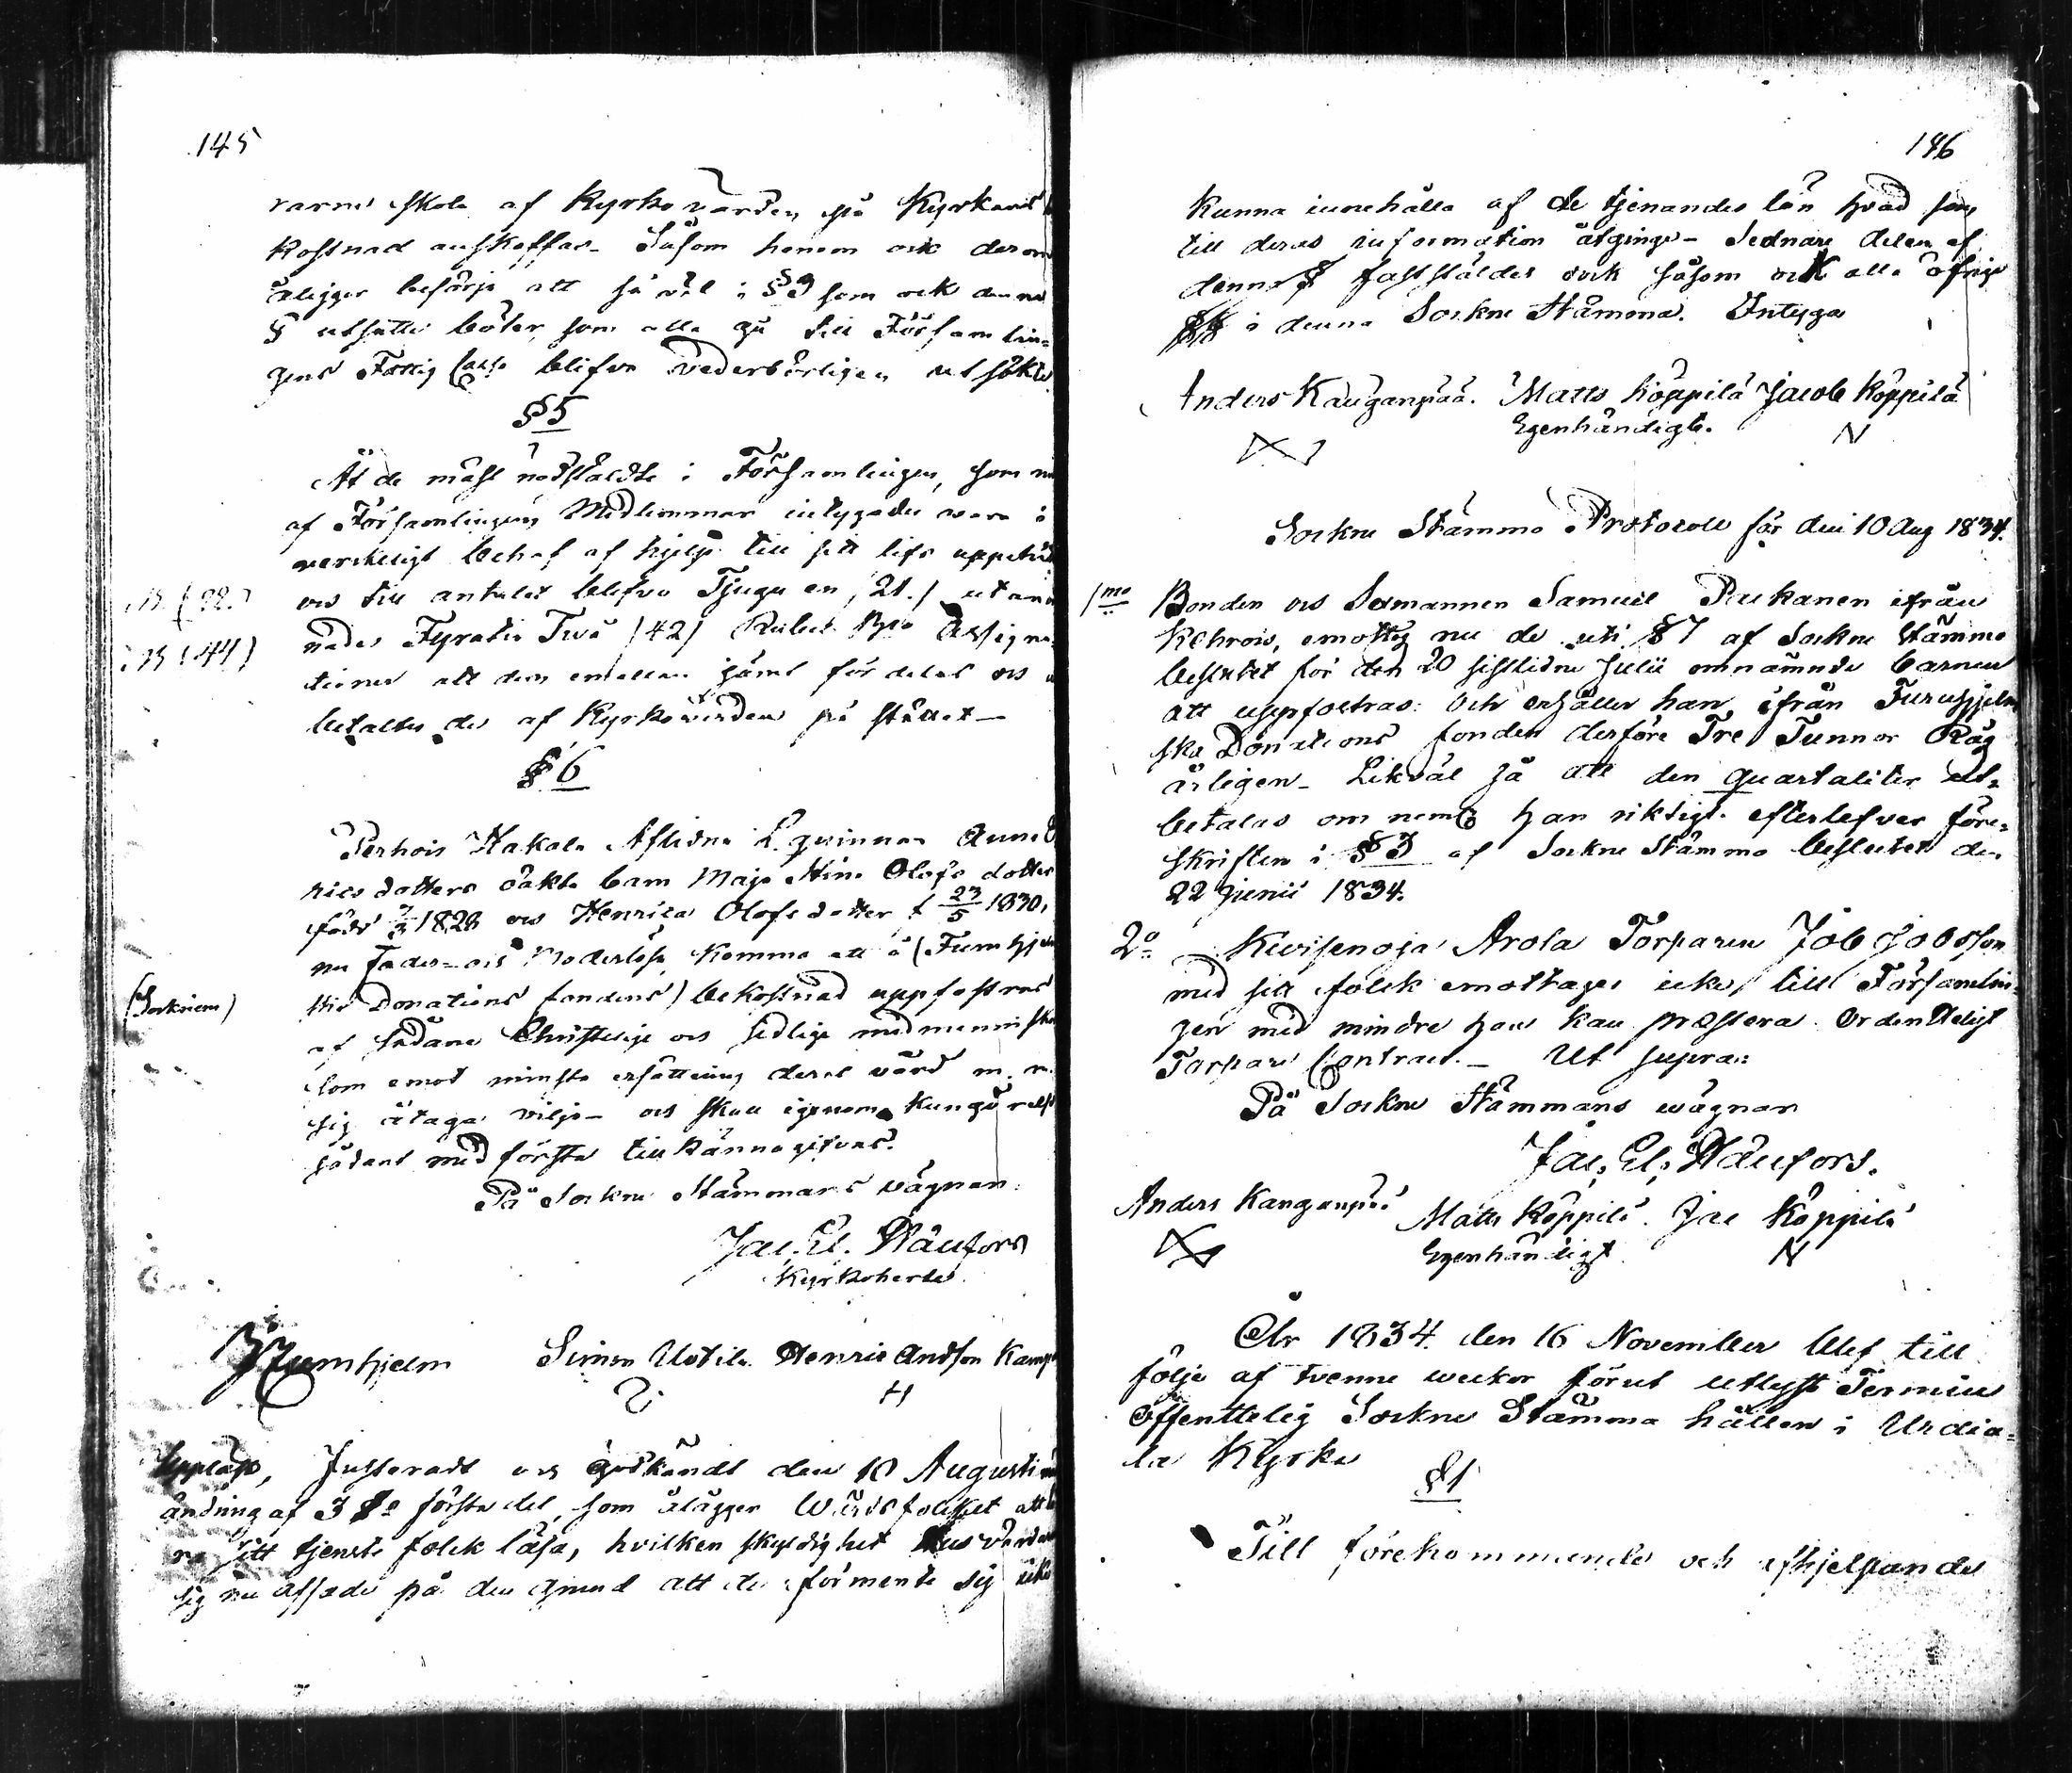 145
varne skola af Kyrko värden på Kyrkans
kostnad anskaffas. Såsom honom ock derom
åligger besörja att så väl i § 3 som ock denna
§ utsatte böter, som alla gå till Församlin-
gens Fattig Cassa blifva vederbörligen utsökte
§ 5
At de mäst nödstäldte i Församlingen, som nu
af Församlingens Medlemmar intygades vara i
verkeligt behof af hjelp till sitt lifs uppehäl
os till antalet blefvo Tjugu en /21./ utano
nades Fyratio Två /42/ Rubel B:co Assigna-
tioner att dem emellan jämt fördelas os
betaltes de af Kyrkovärden på stället—
(22.)
(44)
§ 6
Perhois Hakala Aflidna L. qvinnan Anna
ricsdotters oäkta barn Maja Stina Olofs dotter
född 1828 os Henrica Olofsdotter f 23/5 1830,
nu Fader- os Moderlösa komma att å (Furuhjelm
ska Donations fondens) bekostnad uppfostras
(Socknens)
af sådane Christelige os sedlige medmenniskor
som emot minsta ersättning deras vård m. m.
sig åtaga vilja— os skall igenom Kungörelse
sådant med första tillkännagifvas.
På Sockne Stämmans vägnar
Jac. El. Wänfors
Kyrkoherde
Furuhjelm Simon Uotila Henric Andson Kamp
H
Uppläst, Justeradt os godkändt den 10 Augusti
ändring af 3 §s första del, som ålägger Wärdsfolket att
ra sitt tjenste folck läsa, hvilken skyldighet Husvärdar
sig nu afsade på den grund att de förmente sig icke
146
kunna innehålla af de tjenandes lön hvad som
till deras information åtginge— Sednare delen af
denna § fastställdes dock såsom ock alla öfrige
§§ i denna Sockne Stämma. Intyga
Anders Kanganpää. Matts Köppilä Jacob Köppilä
Egenhändigt. N
Sockne Stämmo Protocoll för den 10 Aug 1834.
1mo Bonden os Sexmannen Samuel Paukanen ifrån
Kehrois, emottog nu de uti § 7 af Sockne Stämmo
beslutet för den 20 sistlidne Julii omnämnde barnen
att uppfostras: Och erhåller han ifrån Furuhjelm
ska Donations fonden derföre Tre Tunnor Råg
årligen— Likväl så att den quartaliter ut-
betalas om nemt han riktigt efterlefver före-
skriften i § 3 af Sockne Stämmo beslutet den
22 Junii 1834.
2o Kuisenoja Arola Torparen Job Jobsson
med sitt folck emottages icke till Församlin-
gen med mindre han kan præstera Ordenteligt
Torpare Contract.— Ut supra:
På Sockne Stämmans wägnar
Jac. El. Wänfors.
Anders Kanganpää Matts Köppilä. Jac Köppilä
Egenhändigt N
År 1834. den 16 November blef till
följe af tvenne weckor förut utlyst Termin
Offenttelig Sockne Stämma hållen i Urdia-
la Kyrka
§ 1
Till förekommande och afhjelpande